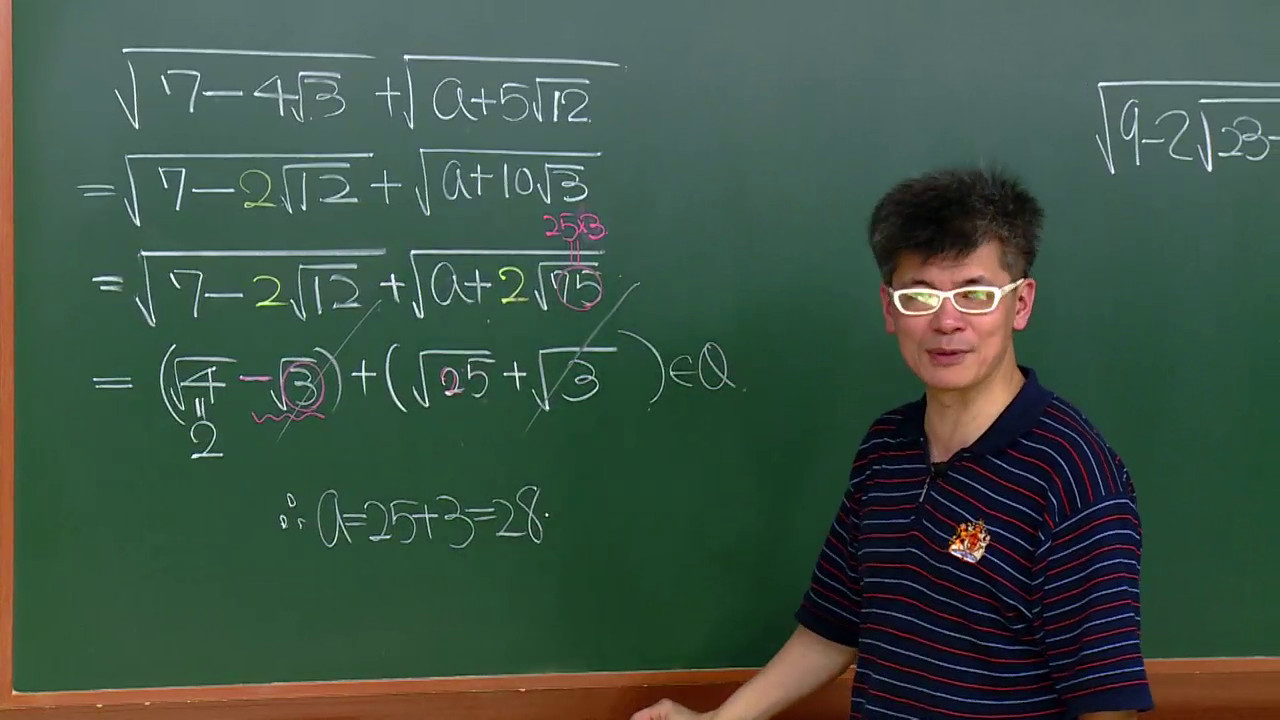 √(7-4√3) + √(a+5√12)
= √(7-2√12) + √(a+10√3)
25×3
= √(7-2√12) + √(a+2√75)
= (√4 - √3) + (√25 + √3) ∈ Q
2
∴ a=25+3=28.
√(9-2√(23-